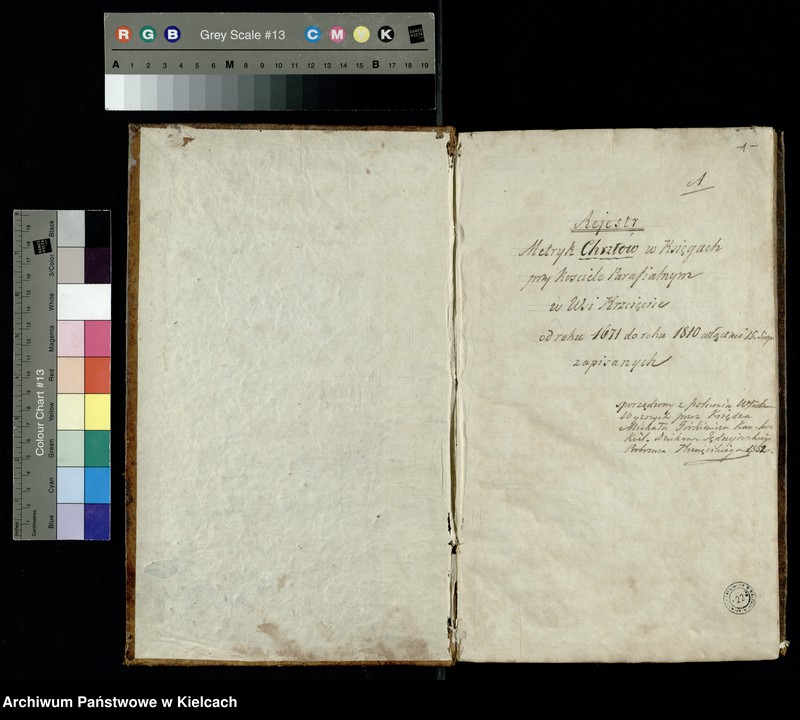 R G B Grey Scale #13 C M Y K
A 1 2 3 4 5 6 M 8 9 10 11 12 13 14 15 B 17 18 19
Colour Chart #13
Blue Cyan Green Yellow Red Magenta White 3/Color Black
Centimetres
-1-
A
Rejestr
Metryk Chrztów w Księgach
przy Kościele Parafialnym
w Wsi Krzcięcie
od roku 1671 do roku 1810 włącznie 15
zapisanych
sporządzony z polecenia Władz
wyższych przez Księdza
Michała
Dziekana
1852 r.
22
Archiwum Państwowe w Kielcach